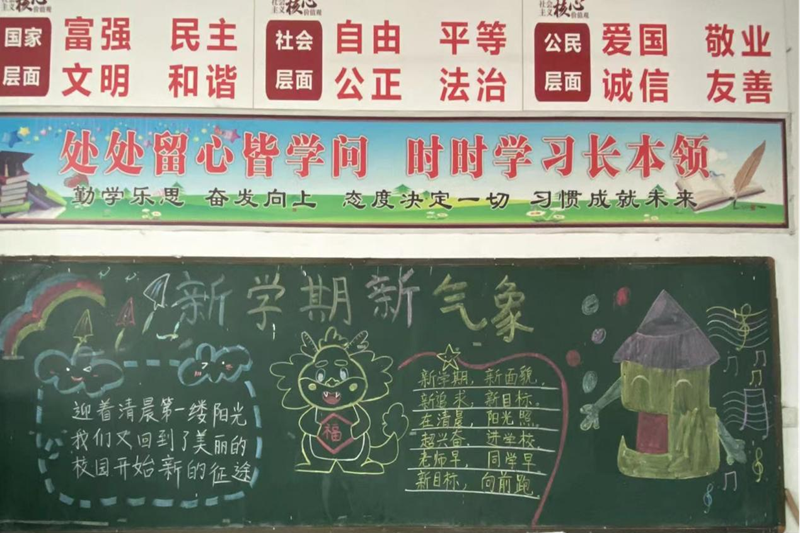 社会主义核心价值观
社会主义核心价值观
社会主义核心价值观
国家层面
富强 民主
文明 和谐
社会层面
自由 平等
公正 法治
公民层面
爱国 敬业
诚信 友善
处处留心皆学问 时时学习长本领
勤学乐思 奋发向上 态度决定一切 习惯成就未来
新学期新气象
迎着清晨第一缕阳光
我们又回到了美丽的
校园开始新的征途
福
新学期，新面貌，
新追求，新目标。
在清晨，阳光照，
超兴奋，进学校
老师早，同学早
新目标，向前跑